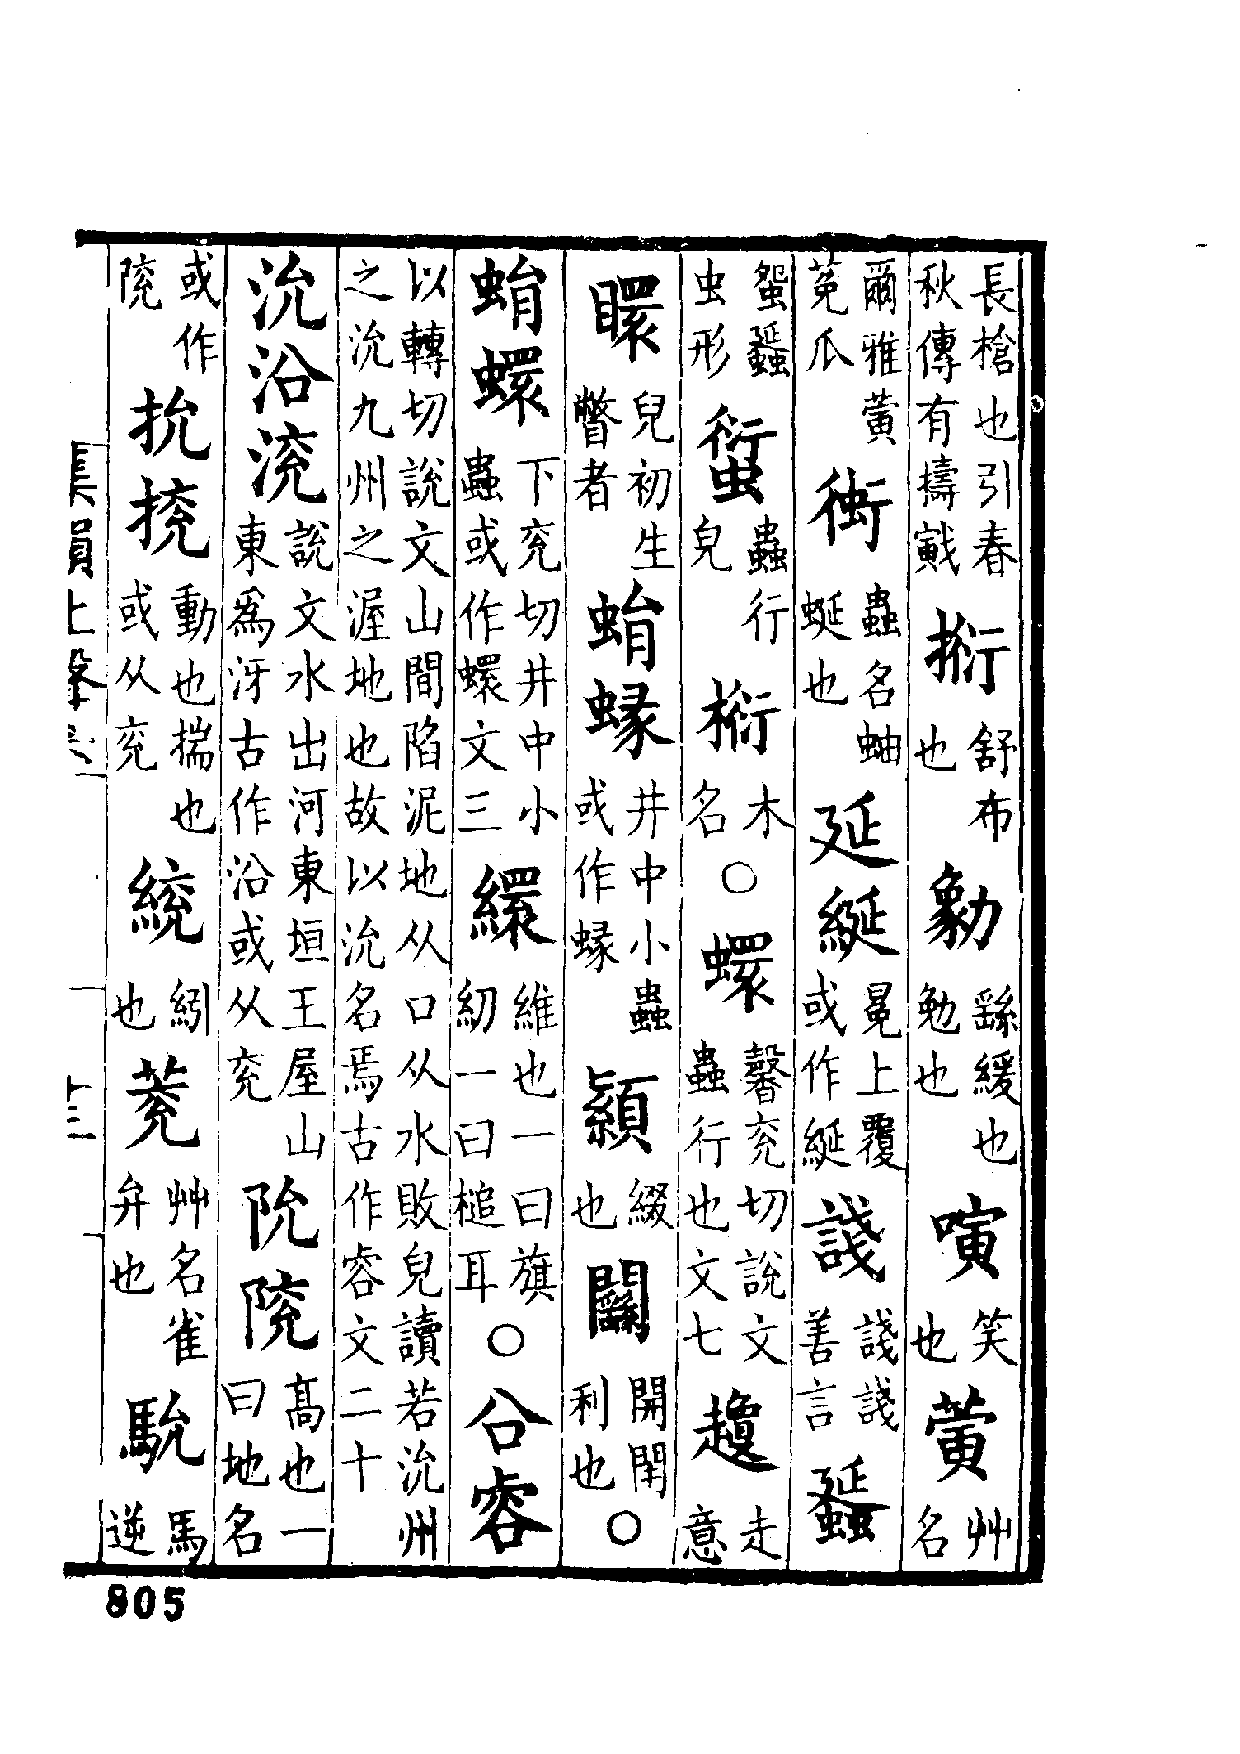 長槍也引春秋傳有擣戭㨔舒布也勨繇緩也勉也㖶笑也䕍艸名
爾雅黃菟瓜衘蟲名蚰蜒也延綖冕上覆或作綖諓諓諓善言䘰
蚰䘰虫形䗡蟲行皃椼木名○蠉馨兗切說文蟲行也文七趬走意
瞏兒初生瞥者蜎蝝井中小蟲或作蝝顈綴也闢開閈利也○
蜎蠉下兗切井中小蟲或作蠉文三繯維也一曰旗紉一曰槌耳○㕣容
以轉切說文山閒陷泥地从口从水敗皃讀若沇州之沇九州之渥地也故以沇名焉古作容文二十
沇沿渷說文水出河東垣王屋山東爲泲古作沿或从兗阭陮高也一曰地名
或作陮抗㨪動也揣也或从兗統糾也蒬艸名雀弁也馻馬逆
集韻上聲
十三
805